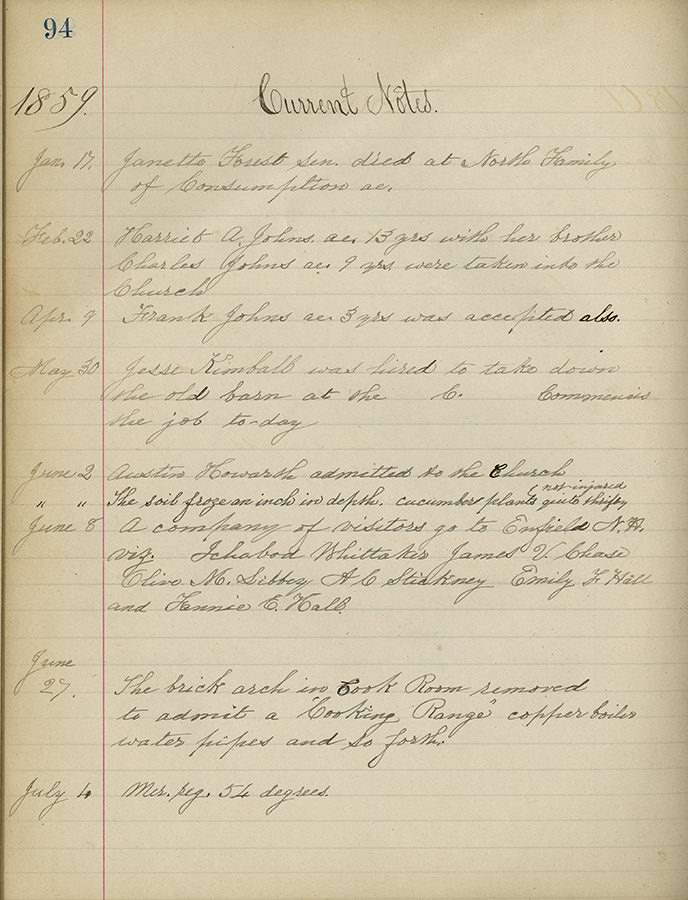 94
1859. Current Notes.
Jan. 17. Janette Forest sen. died at North Family
of Consumption ae.
Feb. 22 Harriet A. Johns. ae. 13 yrs with her brother
Charles Johns ae. 9 yrs. were taken into the
Church
Apr. 9 Frank Johns ae. 3 yrs was accepted also.
May 30 Jesse Kimball was hired to take down
the old barn at the C. Commences
the job to-day
June 2 Austin Howarth admitted to the Church
not injured
" " The soil froze an inch in depth. cucumber plants quite thrifty
June 8 A company of visitors go to Enfield N. H.
viz. Ichabod Whittaker James V. Chase
Olive M. Libbey A C Stickney Emily F Hall
and Fannie E. Hall.
June
27. The brick arch in Cook Room removed
to admit a "Cooking Range" copper boiler
water pipes and so forth.
July 4 Mer. reg. 54 degrees.